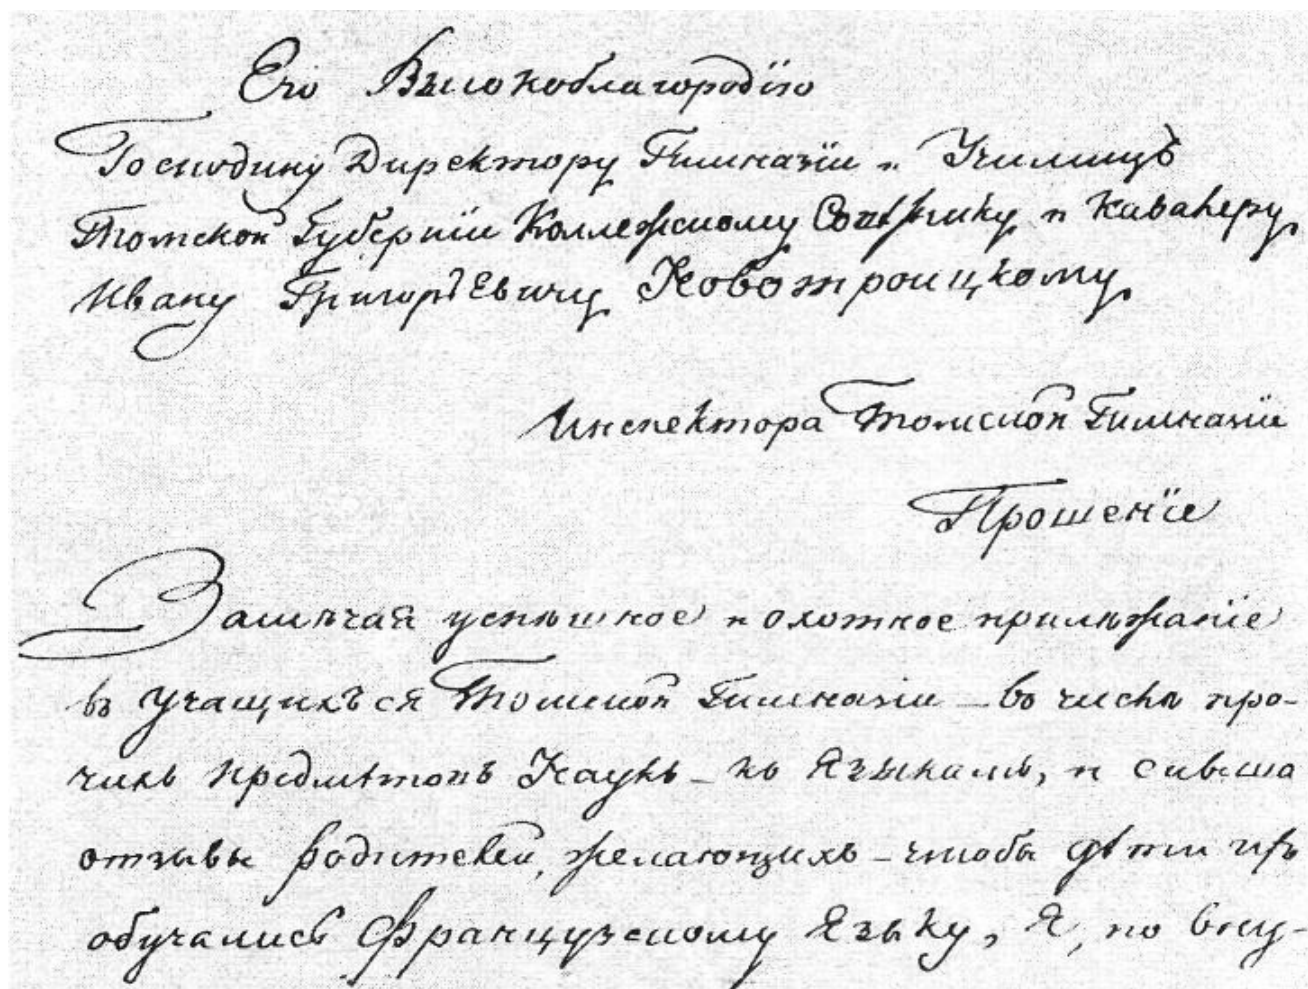 Его Высокоблагородїю
Господину Директору Гимназїи и Училищъ
Томской Губернїи Коллежскому Совѣтнику и Кавалеру
Ивану Григорьевичу Новотроицкому
Инспектора Томской Гимназїи
Прошенїе
Замѣчая успѣшное и охотное прилѣжанїе
въ учащихъся Томской Гимназїи – во числѣ про-
чихъ предметовъ Наукъ – къ Языкамъ, и слыша
отзывы родителей, желающихъ – чтобы дѣти ихъ
обучались Французскому Языку, Я, по вну-